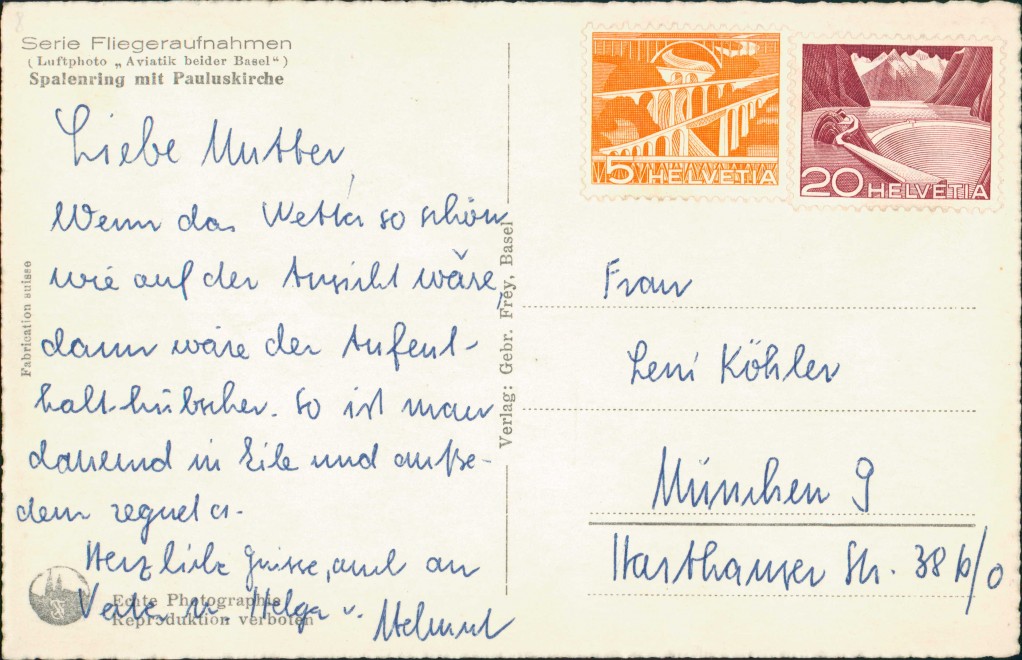 Serie Fliegeraufnahmen
( Luftphoto „ Aviatik beider Basel“ )
Spalenring mit Pauluskirche
Liebe Mutter,
Wenn das Wetter so schön
wie auf der Ansicht wäre,
dann wäre der Aufent-
halt hübscher. So ist man
dauernd in Eile und außer-
dem regnet es.
Herzliche Grüsse, auch an
Vater u. Helga v. Helmut
Echte Photographie
Reproduktion verboten
Fabrication suisse
Verlag: Gebr. Frey, Basel
5 HELVETIA
20 HELVETIA
Frau
Leni Köhler
München 9
Harthauser Str. 38 b/0